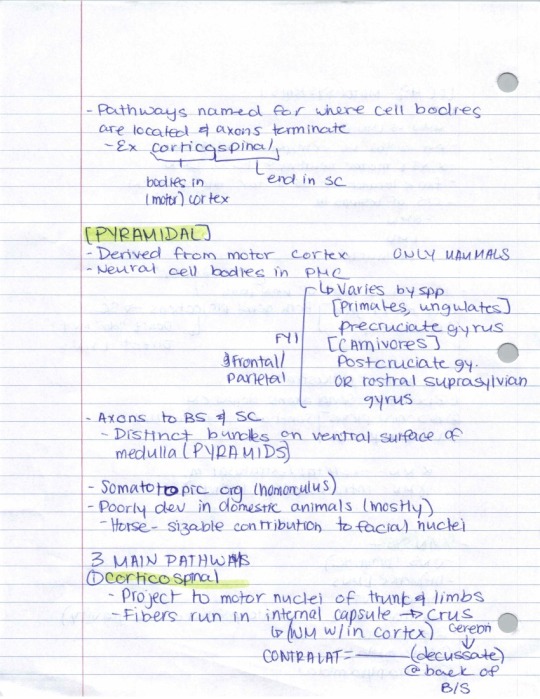 - Pathways named for where cell bodies
are located & axons terminate
- Ex corticospinal
bodies in
(motor) cortex
end in SC
[PYRAMIDAL]
- Derived from motor cortex ONLY MAMMALS
- Neural cell bodies in PMC
↳ Varies by spp
[Primates, ungulates]
precruciate gyrus
FYI [Carnivores]
Frontal/ Postcruciate gy.
parietal OR rostral suprasylvian
gyrus
- Axons to BS & SC
- Distinct bundles on ventral surface of
medulla (PYRAMIDS)
- Somatotopic org (homonculus)
- Poorly dev in domestic animals (mostly)
- Horse - sizable contribution to facial nuclei
3 MAIN PATHWAYS
① Corticospinal
- Project to motor nuclei of trunk & limbs
- Fibers run in internal capsule → Crus
↳ (WM w/in cortex) Cerebri
CONTRALAT = (decussate)
@ back of
B/S